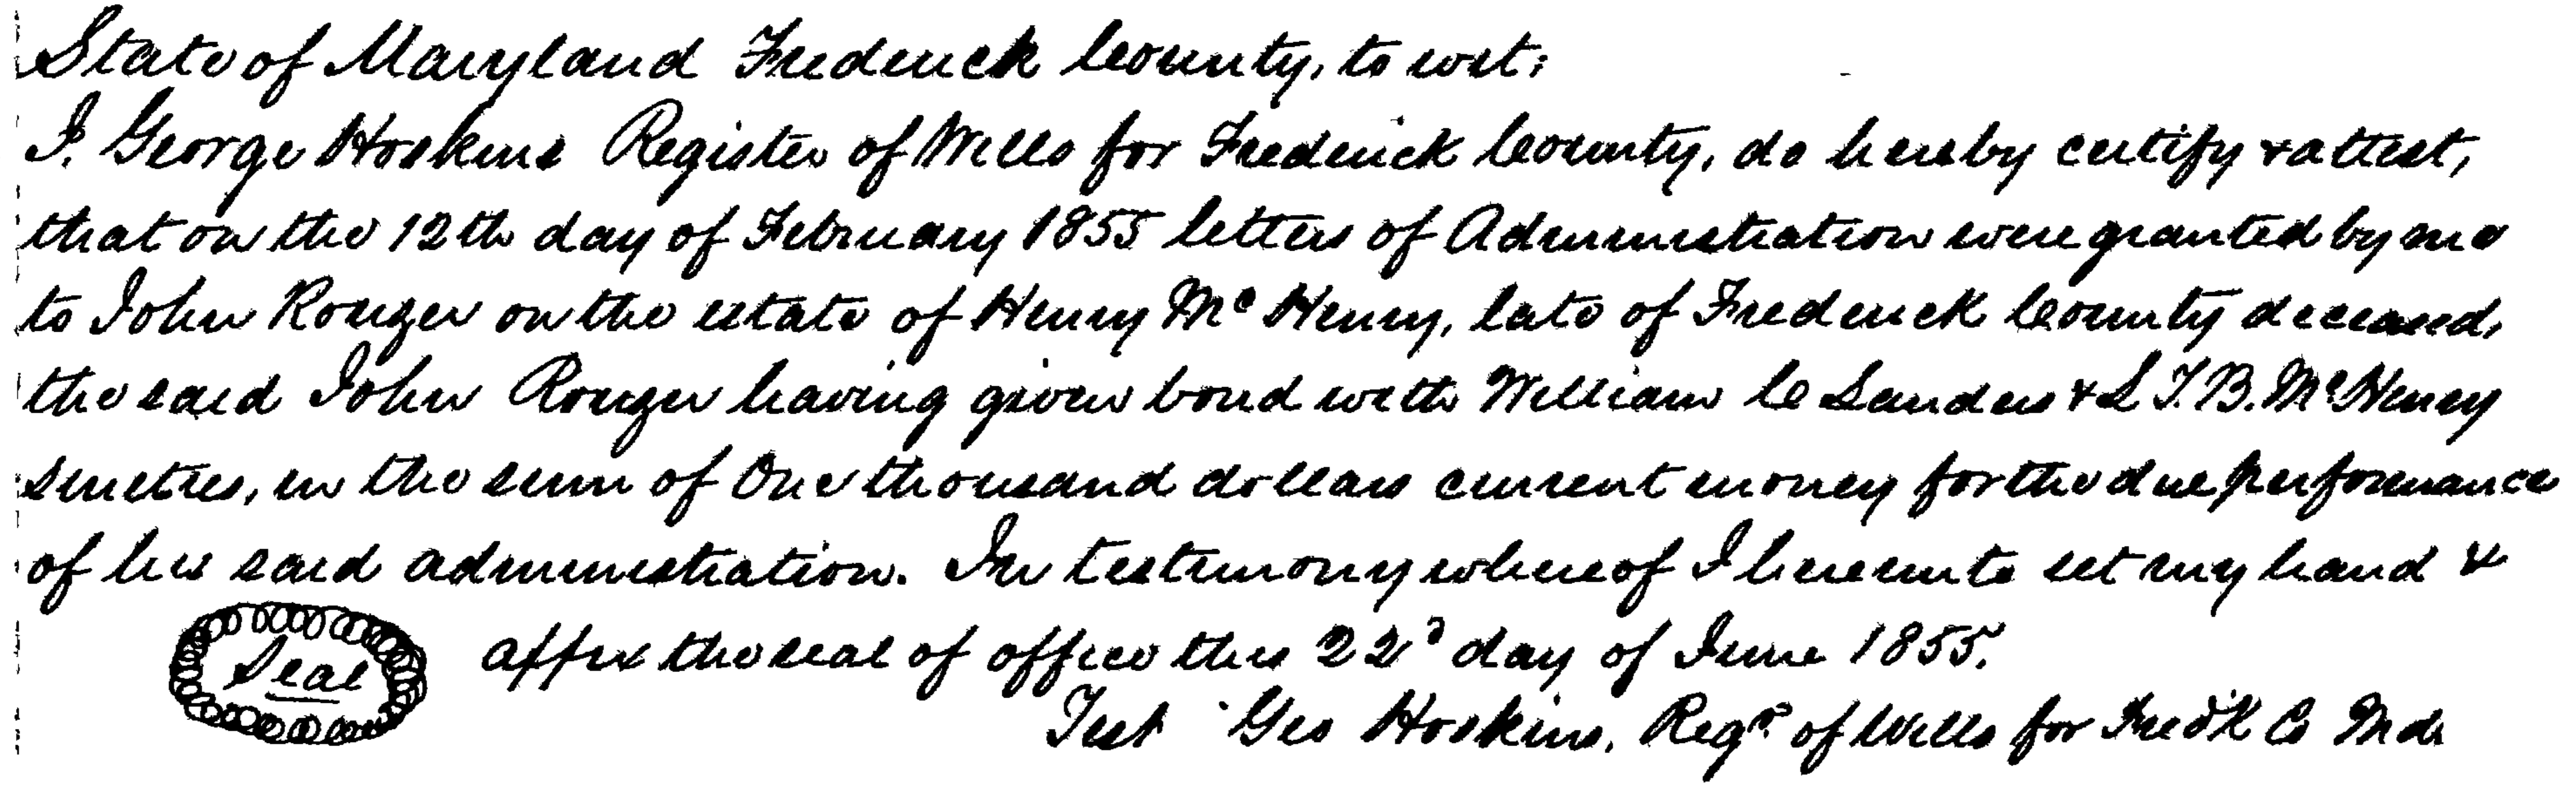 State of Maryland Frederick County, to wit:
I. George Hoskins Register of Wills for Frederick County, do hereby certify & attest,
that on the 12th day of February 1855 letters of Administration were granted by me
to John Rouzer on the estate of Henry Mc Henry, late of Frederick County deceased,
the said John Rouzer having given bond with William C Sanders & S T. B. McHenry
sureties, in the sum of One thousand dollars current money for the due performance
of his said administration. In testimony whereof I hereunto set my hand &
Seal affix the seal of office this 22d day of June 1855.
Test Geo Hoskins, Regr. of Wills for Fredk Co Md